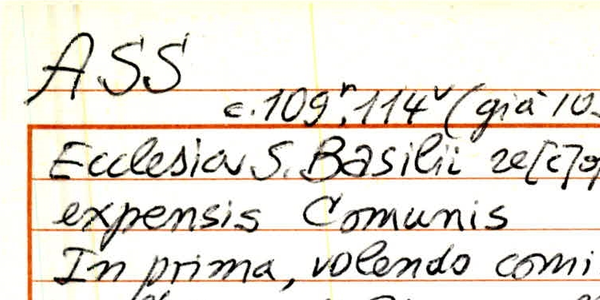 ASS
c. 109r.114v (già 10
Ecclesia S. Basilii
expensis Comunis
In prima, volendo comi